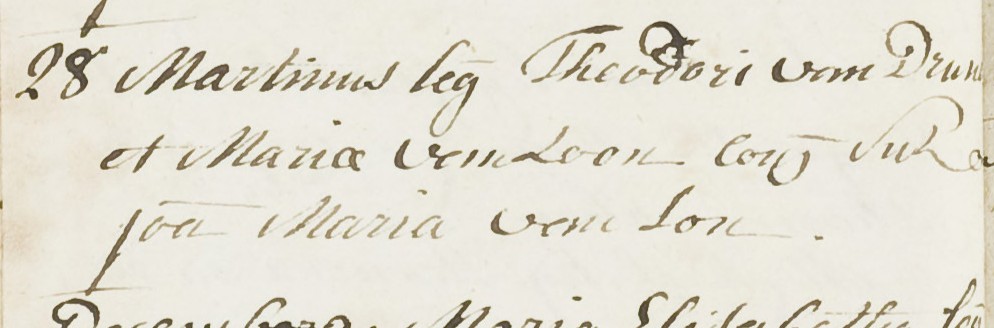 28 Martinus leg Theodori van Drun
et Mariæ van Loon conj Sus
joa Maria van Lon.
Decembero. Maria Elisabetha leg